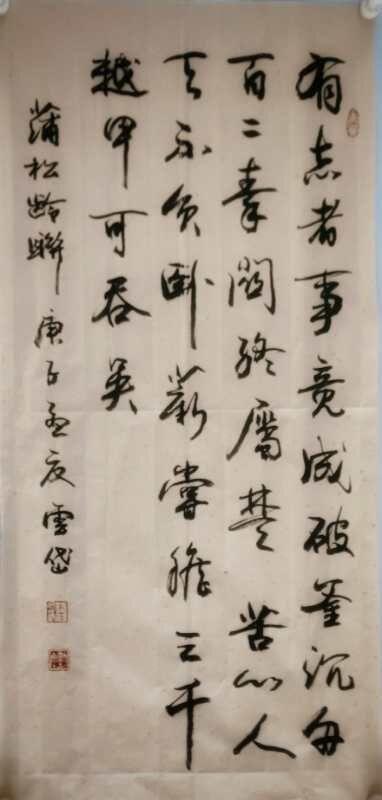 有志者事竟成破釜沉舟
百二秦關終屬楚 苦心人
天不負卧薪嘗膽三千
越甲可吞吳
蒲松齡聯 庚子孟夏 雲岱